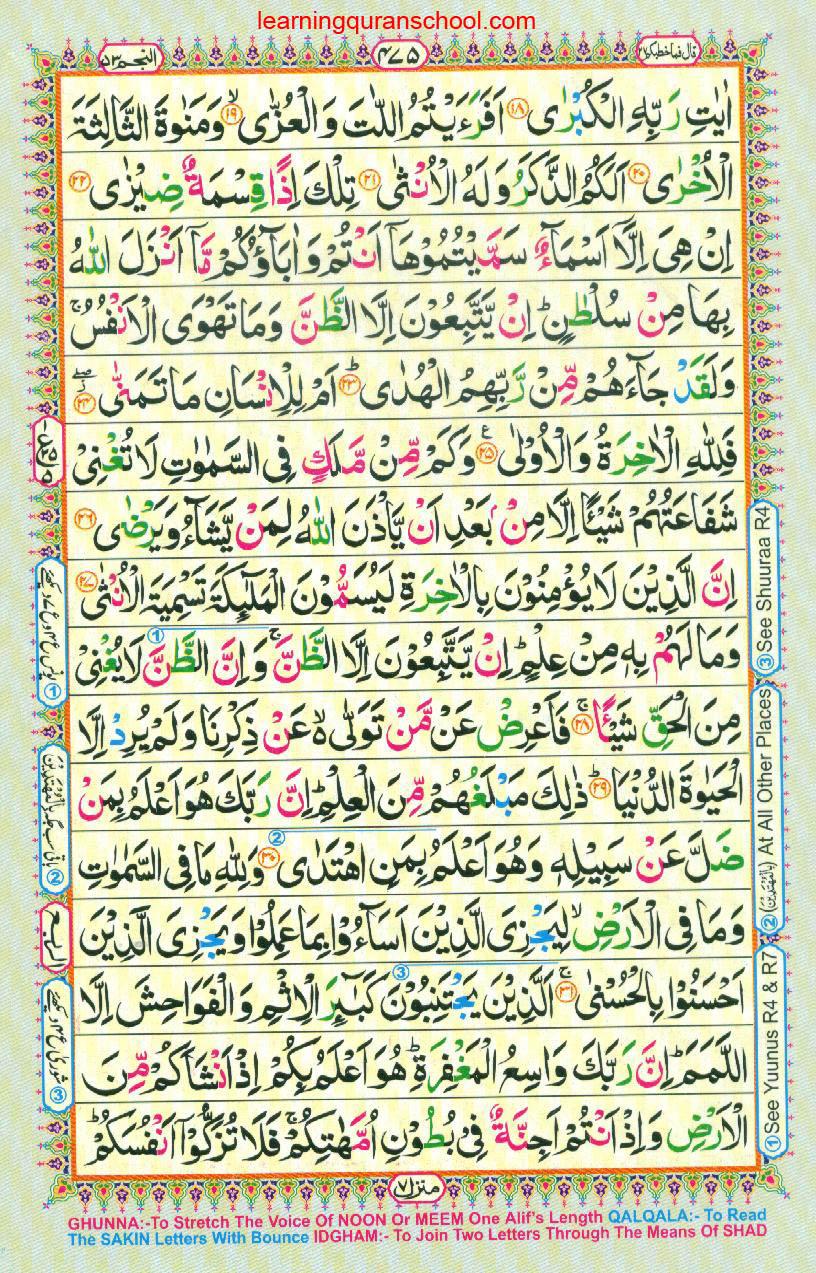 learningquranschool.com
النجم ۵۳
۴۷۵
قال فما خطبكم ۲۷
اٰيٰتِ رَبِّهِ الْكُبْرٰى ﴿۱۸﴾ اَفَرَءَيْتُمُ اللّٰتَ وَالْعُزّٰى ۙ﴿۱۹﴾ وَمَنٰوةَ الثَّالِثَةَ
الْاُخْرٰى ﴿۲۰﴾ اَلَكُمُ الذَّكَرُ وَلَهُ الْاُنْثٰى ﴿۲۱﴾ تِلْكَ اِذًا قِسْمَةٌ ضِيْزٰى ﴿۲۲﴾
اِنْ هِىَ اِلَّآ اَسْمَآءٌ سَمَّيْتُمُوْهَآ اَنْتُمْ وَاٰبَآؤُكُمْ مَّآ اَنْزَلَ اللّٰهُ
بِهَا مِنْ سُلْطٰنٍ ؕ اِنْ يَّتَّبِعُوْنَ اِلَّا الظَّنَّ وَمَا تَهْوَى الْاَنْفُسُ ۚ
وَلَقَدْ جَآءَهُمْ مِّنْ رَّبِّهِمُ الْهُدٰى ؕ﴿۲۳﴾ اَمْ لِلْاِنْسَانِ مَا تَمَنّٰى ﴿۲۴﴾
فَلِلّٰهِ الْاٰخِرَةُ وَالْاُوْلٰى ﴿۲۵﴾ وَكَمْ مِّنْ مَّلَكٍ فِى السَّمٰوٰتِ لَا تُغْنِىْ
شَفَاعَتُهُمْ شَيْـًٔا اِلَّا مِنْۢ بَعْدِ اَنْ يَّاْذَنَ اللّٰهُ لِمَنْ يَّشَآءُ وَيَرْضٰى ﴿۲۶﴾
اِنَّ الَّذِيْنَ لَا يُؤْمِنُوْنَ بِالْاٰخِرَةِ لَيُسَمُّوْنَ الْمَلٰٓئِكَةَ تَسْمِيَةَ الْاُنْثٰى ﴿۲۷﴾
وَمَا لَهُمْ بِهٖ مِنْ عِلْمٍ ؕ اِنْ يَّتَّبِعُوْنَ اِلَّا الظَّنَّ ۚ وَاِنَّ الظَّنَّ لَا يُغْنِىْ
مِنَ الْحَقِّ شَيْـًٔا ۚ﴿۲۸﴾ فَاَعْرِضْ عَنْ مَّنْ تَوَلّٰى ۙ عَنْ ذِكْرِنَا وَلَمْ يُرِدْ اِلَّا
الْحَيٰوةَ الدُّنْيَا ؕ﴿۲۹﴾ ذٰلِكَ مَبْلَغُهُمْ مِّنَ الْعِلْمِ ؕ اِنَّ رَبَّكَ هُوَ اَعْلَمُ بِمَنْ
ضَلَّ عَنْ سَبِيْلِهٖ وَهُوَ اَعْلَمُ بِمَنِ اهْتَدٰى ﴿۳۰﴾ وَلِلّٰهِ مَا فِى السَّمٰوٰتِ
وَمَا فِى الْاَرْضِ ۙ لِيَجْزِىَ الَّذِيْنَ اَسَآءُوْا بِمَا عَمِلُوْا وَيَجْزِىَ الَّذِيْنَ
اَحْسَنُوْا بِالْحُسْنٰى ۚ﴿۳۱﴾ اَلَّذِيْنَ يَجْتَنِبُوْنَ كَبٰٓئِرَ الْاِثْمِ وَالْفَوَاحِشَ اِلَّا
اللَّمَمَ ؕ اِنَّ رَبَّكَ وَاسِعُ الْمَغْفِرَةِ ؕ هُوَ اَعْلَمُ بِكُمْ اِذْ اَنْشَاَكُمْ مِّنَ
الْاَرْضِ وَاِذْ اَنْتُمْ اَجِنَّةٌ فِىْ بُطُوْنِ اُمَّهٰتِكُمْ ۚ فَلَا تُزَكُّوْٓا اَنْفُسَكُمْ ؕ
③ See Shuuraa R4
② (بِالْمُهْتَدِيْنَ) At All Other Places
① See Yuunus R4 & R7
منزل ۷
GHUNNA:-To Stretch The Voice Of NOON Or MEEM One Alif's Length QALQALA:- To Read
The SAKIN Letters With Bounce IDGHAM:- To Join Two Letters Through The Means Of SHAD